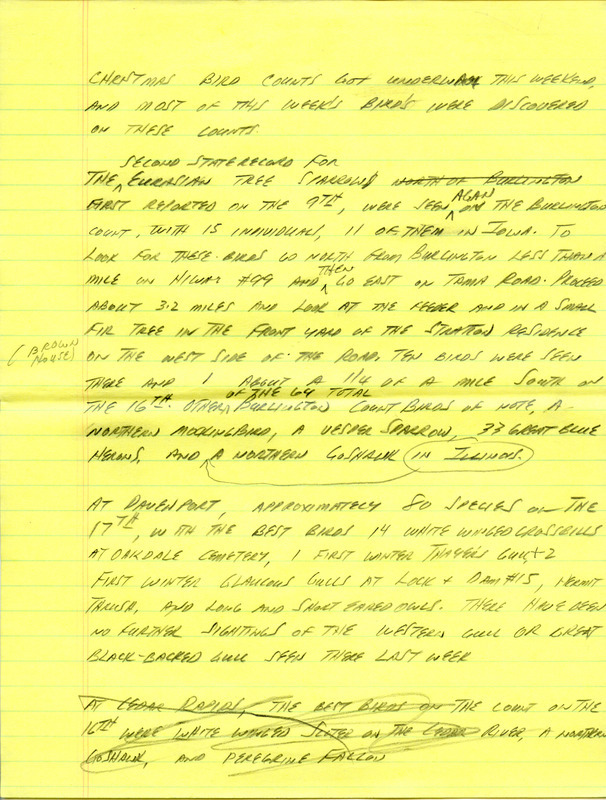 CHRISTMAS BIRD COUNTS GOT UNDERWAY THIS WEEKEND,
AND MOST OF THIS WEEK'S BIRDS WERE DISCOVERED
ON THESE COUNTS.
SECOND STATE RECORD FOR
THE EURASIAN TREE SPARROWS NORTH OF BURLINGTON
FIRST REPORTED ON THE 9TH, WERE SEEN AGAIN ON THE BURLINGTON
COUNT, WITH 15 INDIVIDUALS, 11 OF THEM IN IOWA. TO
LOOK FOR THESE BIRDS GO NORTH FROM BURLINGTON LESS THAN A
MILE ON HIWAY #99 AND THEN GO EAST ON TAMA ROAD. PROCEED
ABOUT 3.2 MILES AND LOOK AT THE FEEDER AND IN A SMALL
FIR TREE IN THE FRONT YARD OF THE STRATTON RESIDENCE
(BROWN HOUSE)
ON THE WEST SIDE OF THE ROAD. TEN BIRDS WERE SEEN
THERE AND 1 ABOUT A 1/4 OF A MILE SOUTH ON
OF THE 64 TOTAL
THE 16TH. OTHER BURLINGTON COUNT BIRDS OF NOTE, A
NORTHERN MOCKINGBIRD, A VESPER SPARROW, 33 GREAT BLUE
HERONS, AND A NORTHERN GOSHAWK IN ILLINOIS.
AT DAVENPORT, APPROXIMATELY 80 SPECIES ON THE
17TH, WITH THE BEST BIRDS 14 WHITE WINGED CROSSBILLS
AT OAKDALE CEMETERY, 1 FIRST WINTER THAYER'S GULL + 2
FIRST WINTER GLAUCOUS GULLS AT LOCK + DAM #15, HERMIT
THRUSH, AND LONG AND SHORT EARED OWLS. THERE HAVE BEEN
NO FURTHER SIGHTINGS OF THE WESTERN GULL OR GREAT
BLACK-BACKED GULL SEEN THERE LAST WEEK
AT CEDAR RAPIDS, THE BEST BIRDS ON THE COUNT ON THE
16TH WERE WHITE WINGED SCOTER ON THE CEDAR RIVER, A NORTHERN
GOSHAWK, AND PEREGRINE FALCON